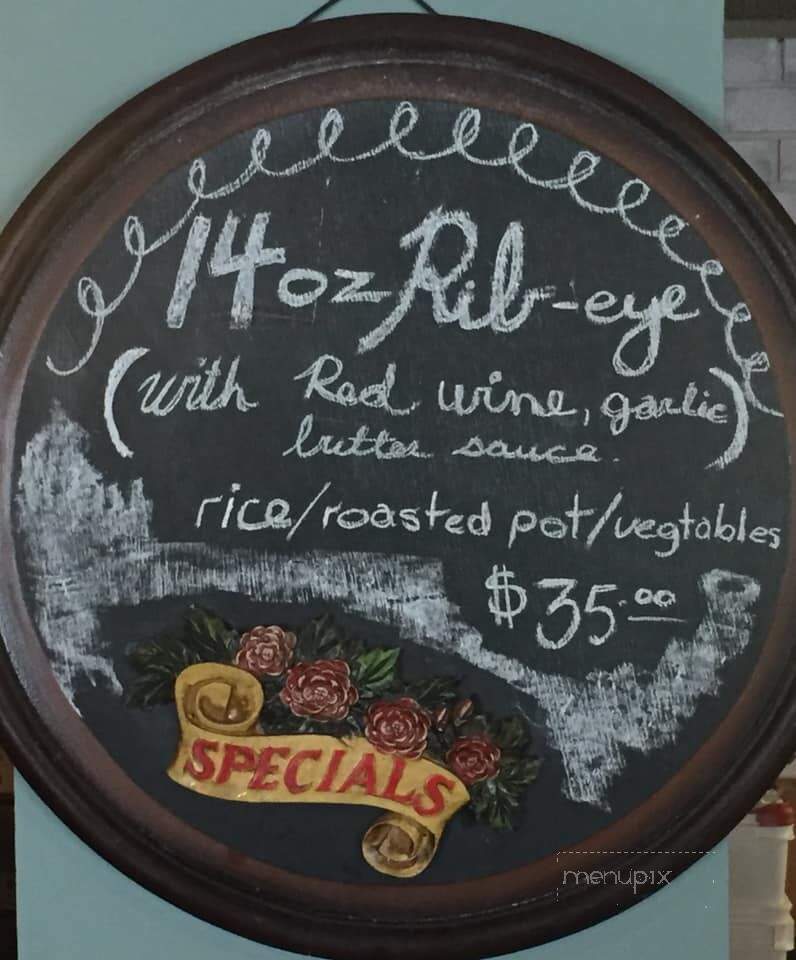 14 oz Rib-eye
(with Red wine, garlic
butter sauce.)
rice/roasted pot/vegtables
$35.00
SPECIALS
menupix